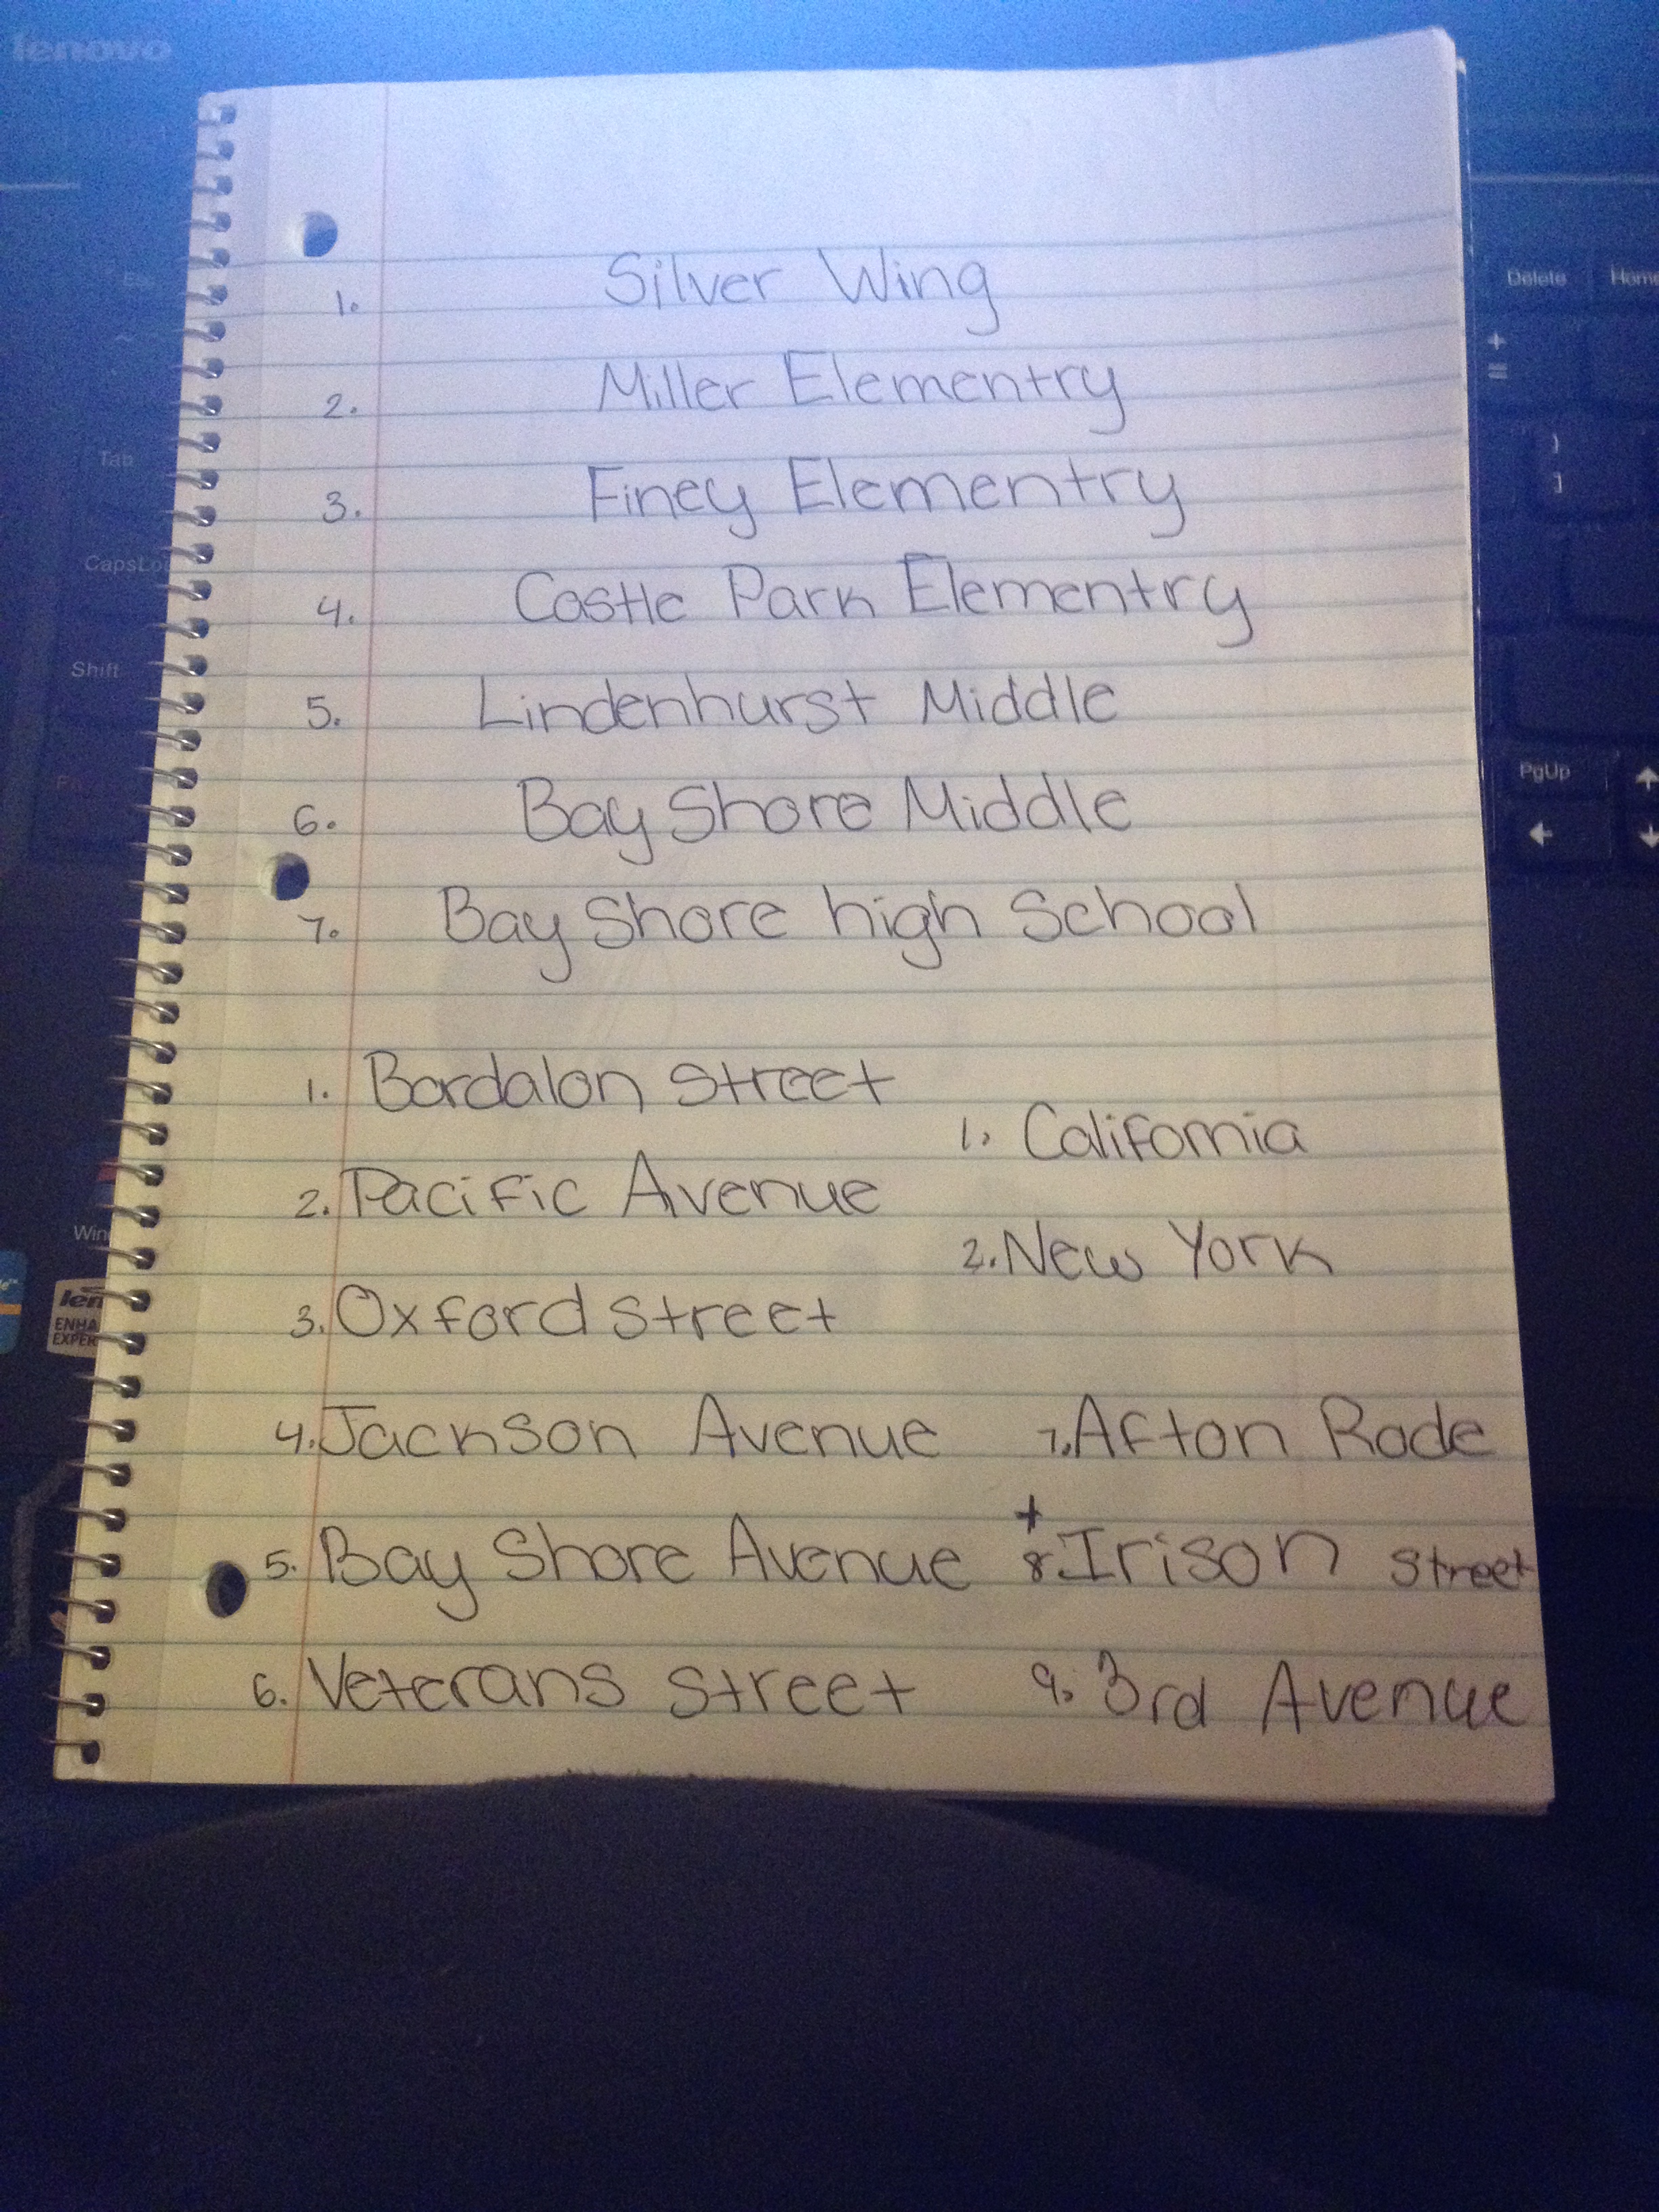 lenovo
Delete Home
+
=
Tab
}
]
CapsLo
Shift
Fn
PgUp
Win
len
ENHA
EXPER
1. Silver Wing
2. Miller Elementry
3. Finey Elementry
4. Castle Park Elementry
5. Lindenhurst Middle
6. Bay Shore Middle
7. Bay Shore high School
1. Bardalon Street
1. California
2. Pacific Avenue
2. New York
3. Oxford Street
4. Jackson Avenue 7. Afton Rode
+
5. Bay Shore Avenue 8 Irison Street
6. Veterans Street 9. 3rd Avenue